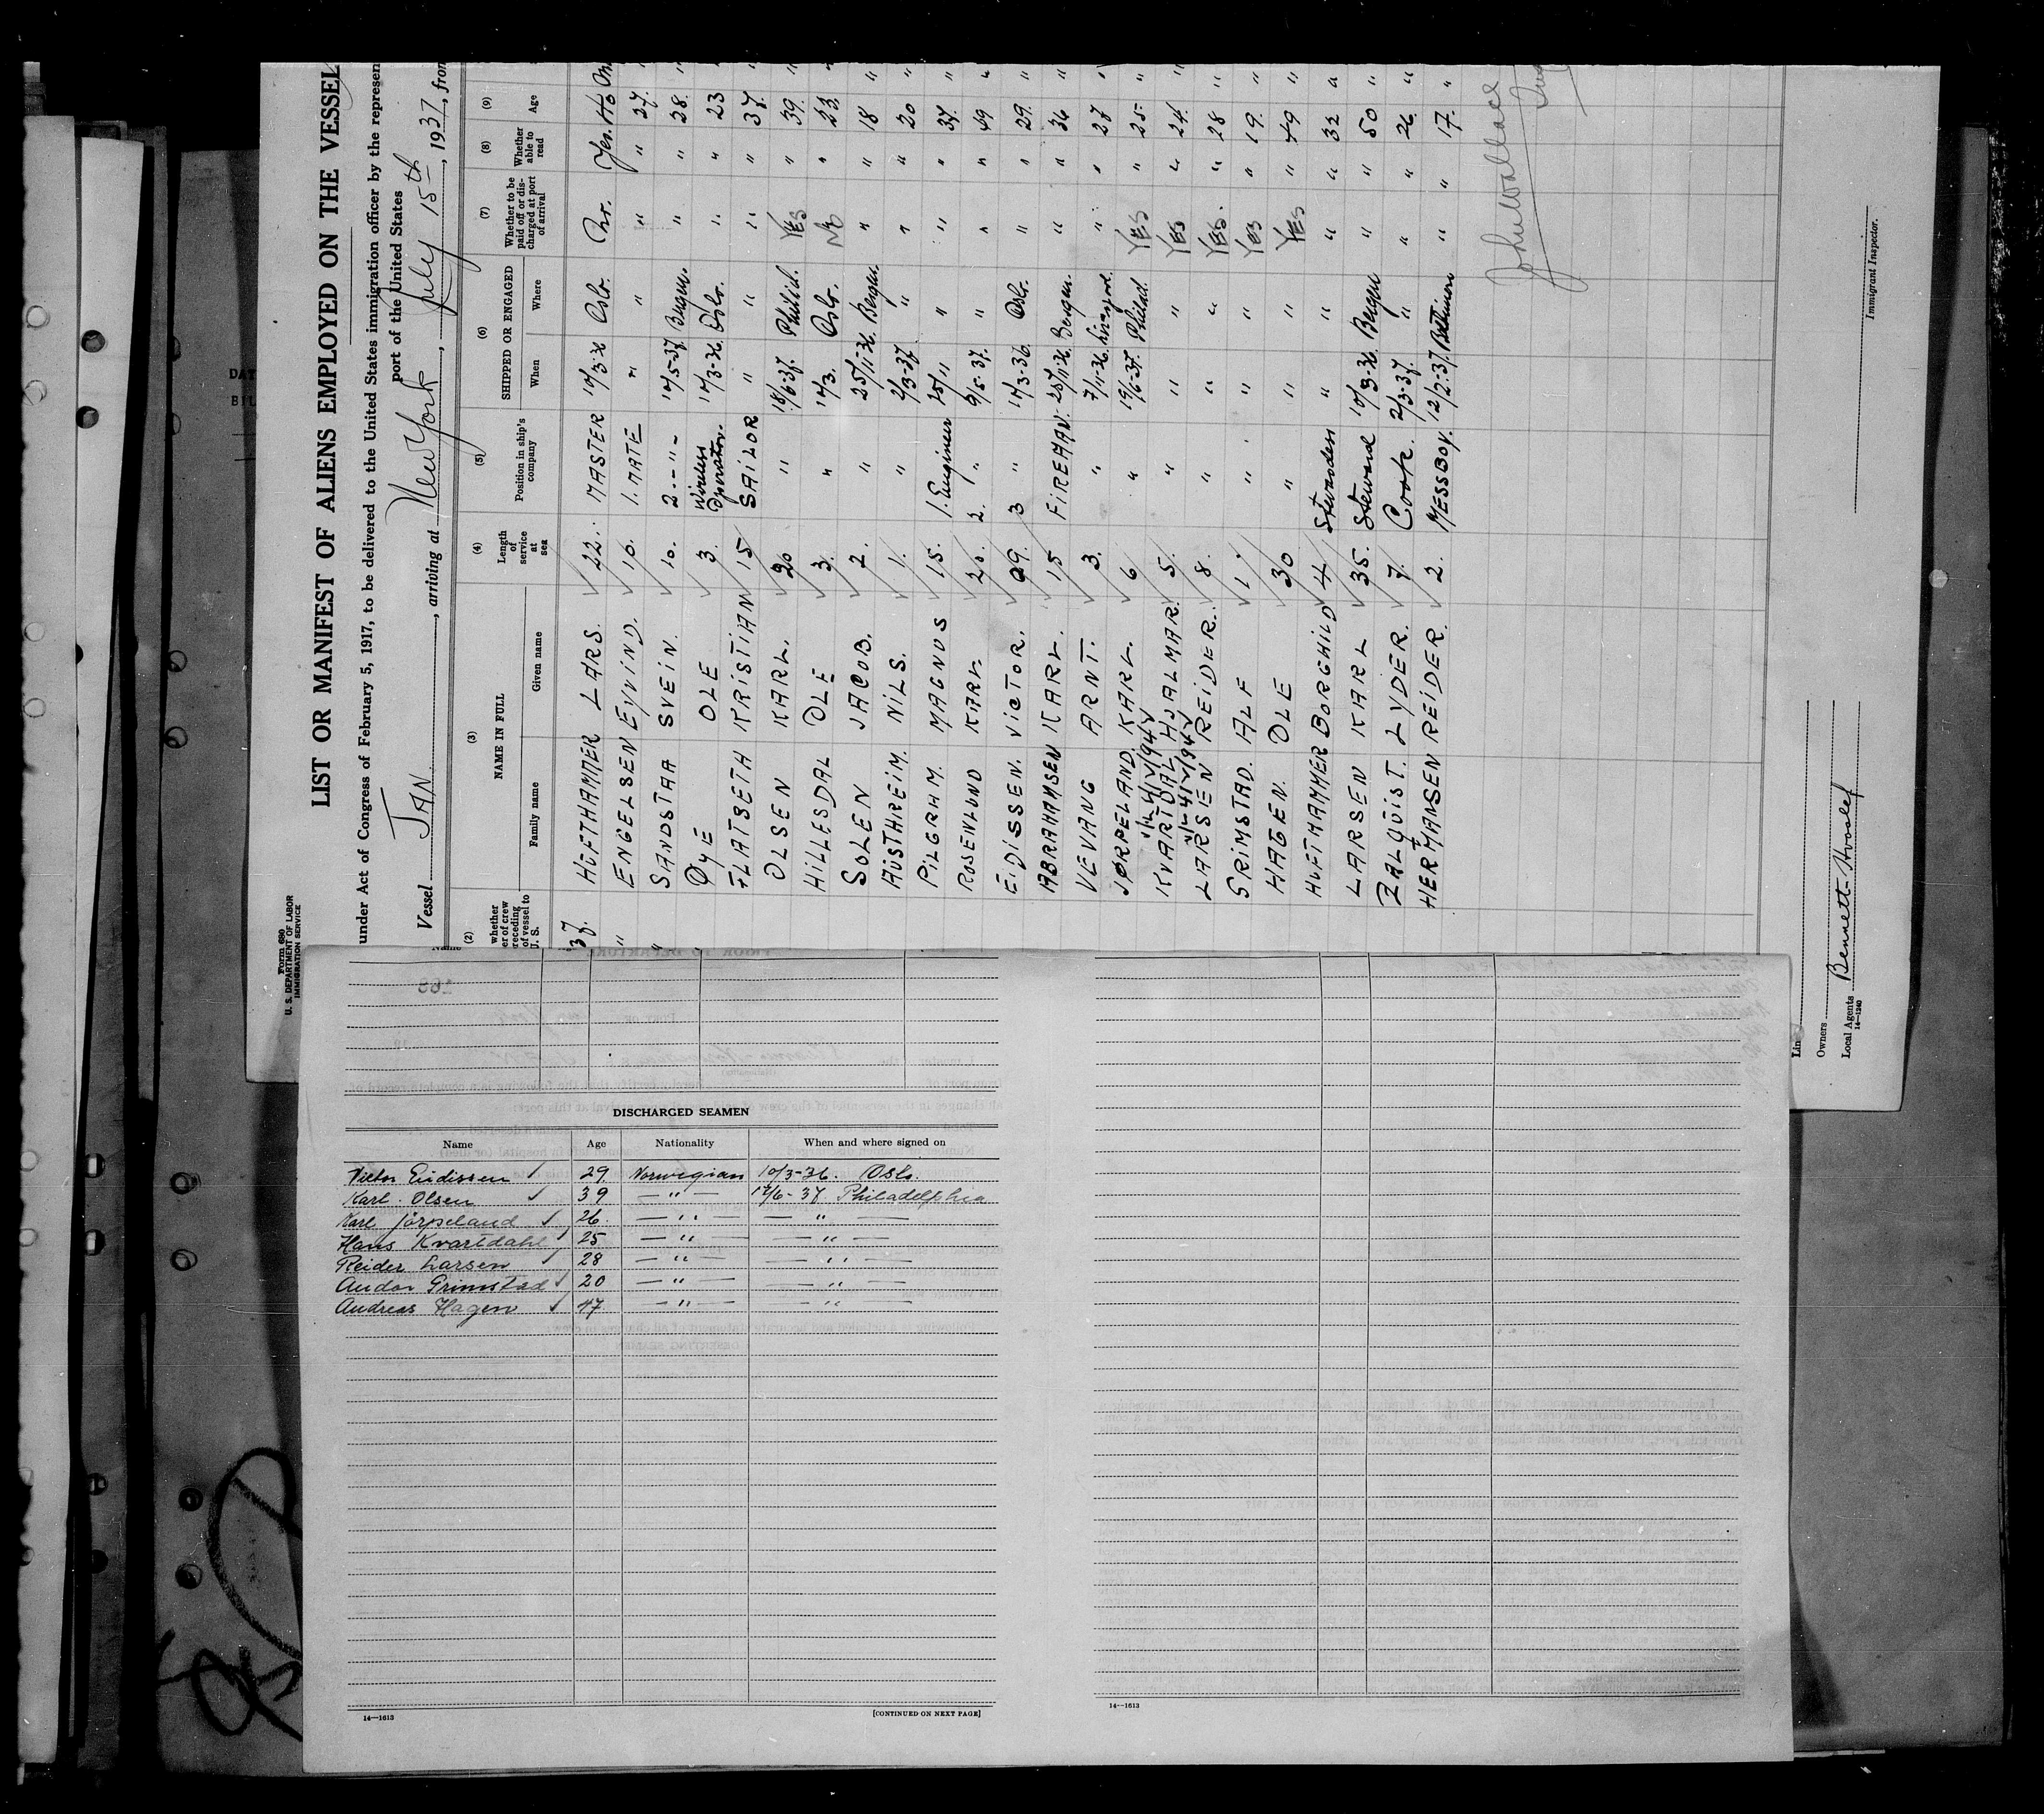 Form 680
U. S. DEPARTMENT OF LABOR
IMMIGRATION SERVICE
LIST OR MANIFEST OF ALIENS EMPLOYED ON THE VESSEL
under Act of Congress of February 5, 1917, to be delivered to the United States immigration officer by the represen
port of the United States
Vessel JAN, arriving at New York, July 15th, 1937, from
(2) (3) (4) (5) (6) (7) (8) (9)
NAME IN FULL SHIPPED OR ENGAGED
whether er of crew receding of vessel to U. S. Family name Given name Length of service at sea Position in ship's company When Where Whether to be paid off or discharged at port of arrival Whether able to read Age
37. HUFTHAMMER LARS. 22. MASTER 10/3-36 Oslo. No. Yes. 40
" ENGELSEN EYVIND. 10. 1. MATE " " " " 27.
" SANDSTAA SVEIN. 10. 2 -- " - 10/5-37 Bergen. " " 28. "
ØYE OLE 3. Wireless Operator. 10/3-36 Oslo. " " 23 "
FLATSETH KRISTIAN 15 SAILOR " " " " 37. "
OLSEN KARL. 20 " 18/6-37. Philad. YES " 39. "
HILLESDAL OLE 3. " 10/3. Oslo. No " 23. "
SOLEN JACOB. 2. " 25/11-36 Bergen. " " 18 "
AUSTHREIM. NILS. 1. " 2/3-37 " " " 20 "
PILGRAM. MAGNUS 15. 1. Engineer 25/11 " " " 37. "
ROSENLUND KARL. 20. 2. " 9/5-37. " " " 49 "
EIDISSEN. VICTOR. 09. 3 " 10/3-36. Oslo. " " 29. "
ABRAHAMSEN KARL. 15 FIREMAN. 25/11-36. Bergen. " " 36 "
VEVANG ARNT. 3. " 7/11-36. " " 27 "
JØRPELAND. KARL. 6 " 19/6-37. Philad. YES " 25- "
KVARTDAL HJALMAR. 5. " " " YES " 24. "
LARSEN REIDER. 8. " " " YES. " 28 "
GRIMSTAD. ALF 1. " " " YES " 19. "
HAGEN. OLE 30 " " " YES " 49 "
HUFTHAMMER BORGHILD 4 Stewardess " " " " 32 "
LARSEN KARL 35. Steward 10/3-36. Bergen " " 50 "
ZALQUIST. LYDER. 7. Cook. 2/3-37. " " " 26. "
HERMANSEN REIDER. 2. MESSBOY. 12/7-37. Baltimore " " 17. "
John Wallace
Immigrant Inspector.
Lin
Owners
Local Agents Bennett-Hvoslef
14—1240
DISCHARGED SEAMEN
Name Age Nationality When and where signed on
Victor Eidissen 29. Norwegian 10/3-36. Oslo.
Karl. Olsen 39 — " — 17/6-37 Philadelphia
Karl Jörpeland 26. — " — — " —
Hans Kvartdahl 25 — " — — " —
Reider Larsen 28 — " — — " —
Andor Grimstad 20 — " — — " —
Andreas Hagen 47 — " — — " —
14—1613 [CONTINUED ON NEXT PAGE]
14—1613